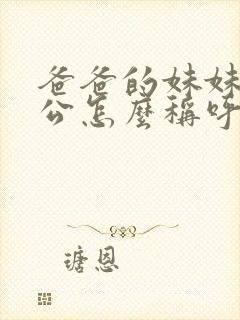 爸爸的妹妹
公怎麼稱呼
瑭恩